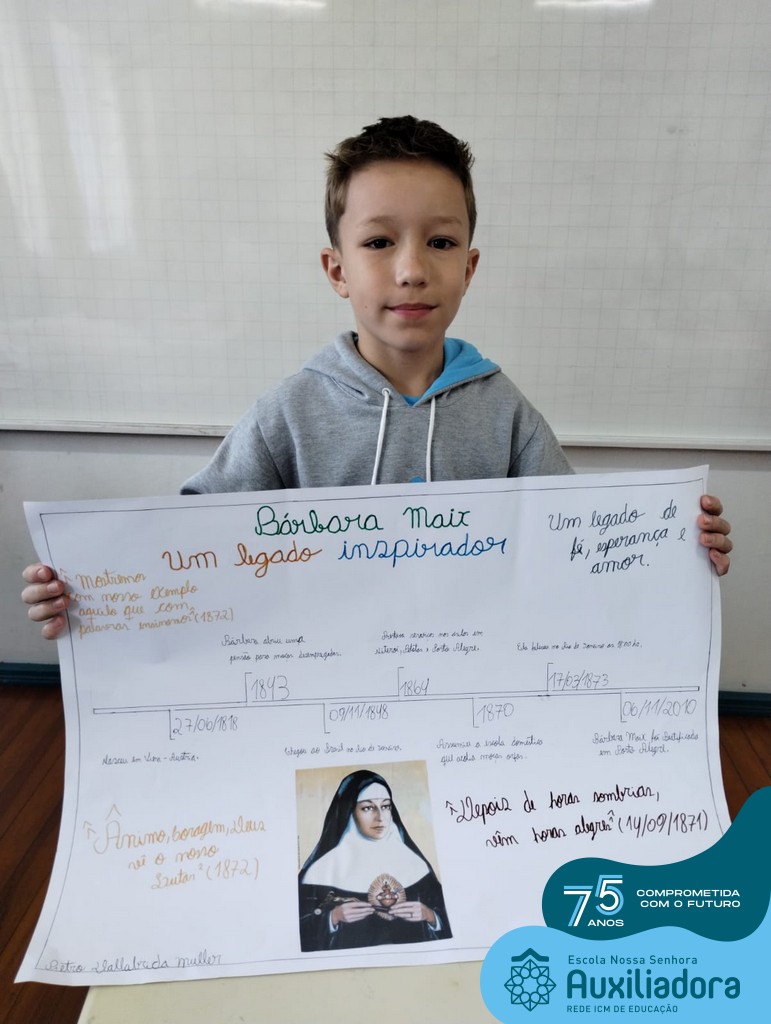 Bárbara Maix
Um legado inspirador
Um legado de
fé, esperança e
amor.
"Mostremos
em nosso exemplo
aquilo que com
palavras ensinamos" (1872)
Bárbara abriu uma
pensão para moças desempregadas.
em
Niterói, Pelotas e Porto Alegre.
Ela faleceu no Rio de Janeiro às
1843
1864
17/03/1873
27/06/1818
09/11/1848
1870
06/11/2010
Nasceu em Viena - Áustria.
Chegou ao Brasil no Rio de Janeiro.
Assumiu a escola doméstica
que acolhia moças órfãs.
Bárbara Maix foi Beatificada
em Porto Alegre.
"Ânimo, coragem, Deus
vê o nosso
lutar" (1872)
"Depois de horas sombrias,
vêm horas alegres" (14/09/1871)
Muller
75 ANOS
COMPROMETIDA
COM O FUTURO
Escola Nossa Senhora
Auxiliadora
REDE ICM DE EDUCAÇÃO